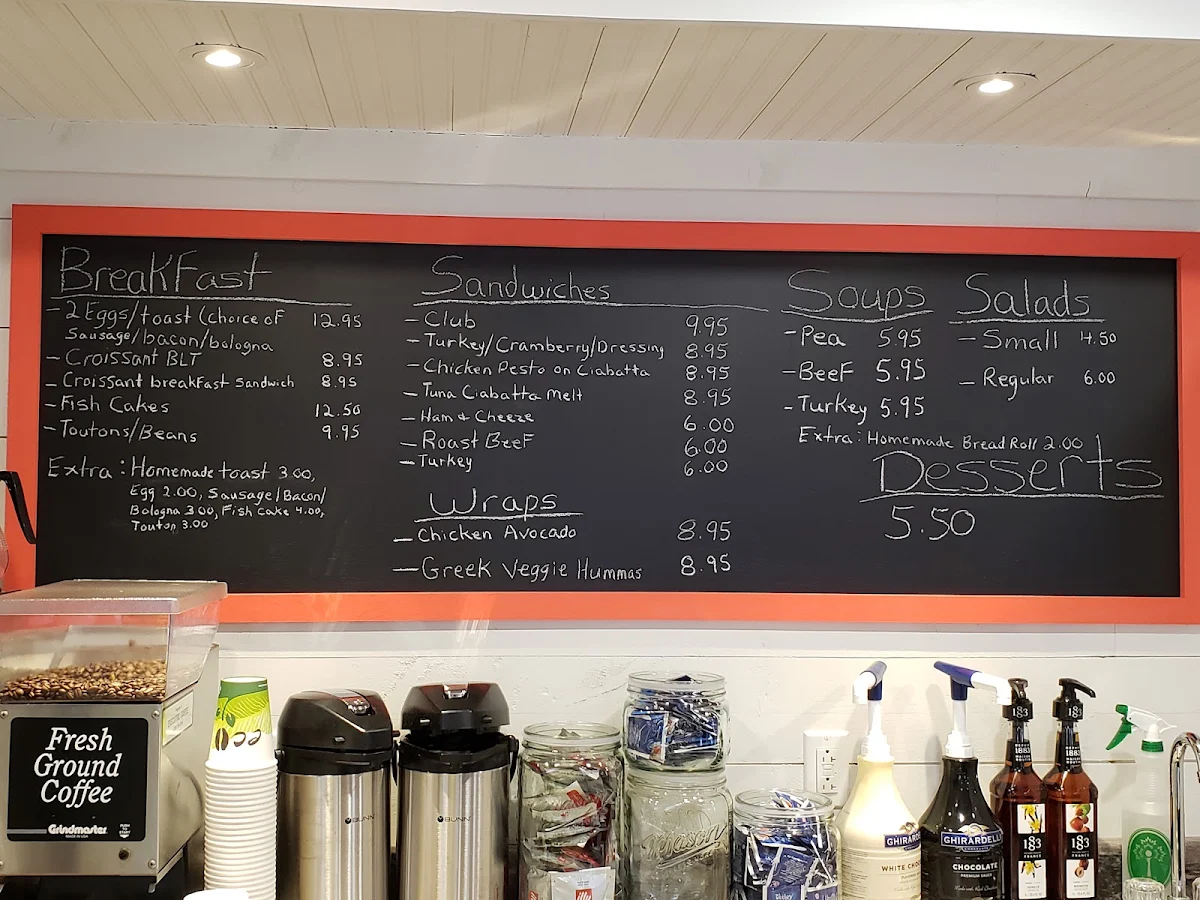 BreakFast
- 2 Eggs/toast (choice oF 12.95
Sausage/bacon/bologna
- Croissant BLT 8.95
- Croissant breakFast Sandwich 8.95
- Fish Cakes 12.50
- Toutons/Beans 9.95
Extra: Homemade toast 3.00,
Egg 2.00, Sausage/Bacon/
Bologna 3.00, Fish Cake 4.00,
Touton 3.00
Sandwiches
- Club 9.95
- Turkey/Cramberry/Dressing 8.95
- Chicken Pesto on Ciabatta 8.95
- Tuna Ciabatta Melt 8.95
- Ham & Cheeze 6.00
- Roast BeeF 6.00
- Turkey 6.00
Wraps
- Chicken Avocado 8.95
- Greek Veggie Hummas 8.95
Soups
- Pea 5.95
- BeeF 5.95
- Turkey 5.95
Extra: Homemade Bread Roll 2.00
Salads
- Small 4.50
- Regular 6.00
Desserts
5.50
Fresh
Ground
Coffee
Grindmaster
BUNN
BUNN
illy
Mason
GHIRARDELLI
WHITE CHO
GHIRARDELLI
CHOCOLATE
1883
183
FRANCE
1883
183
FRANCE